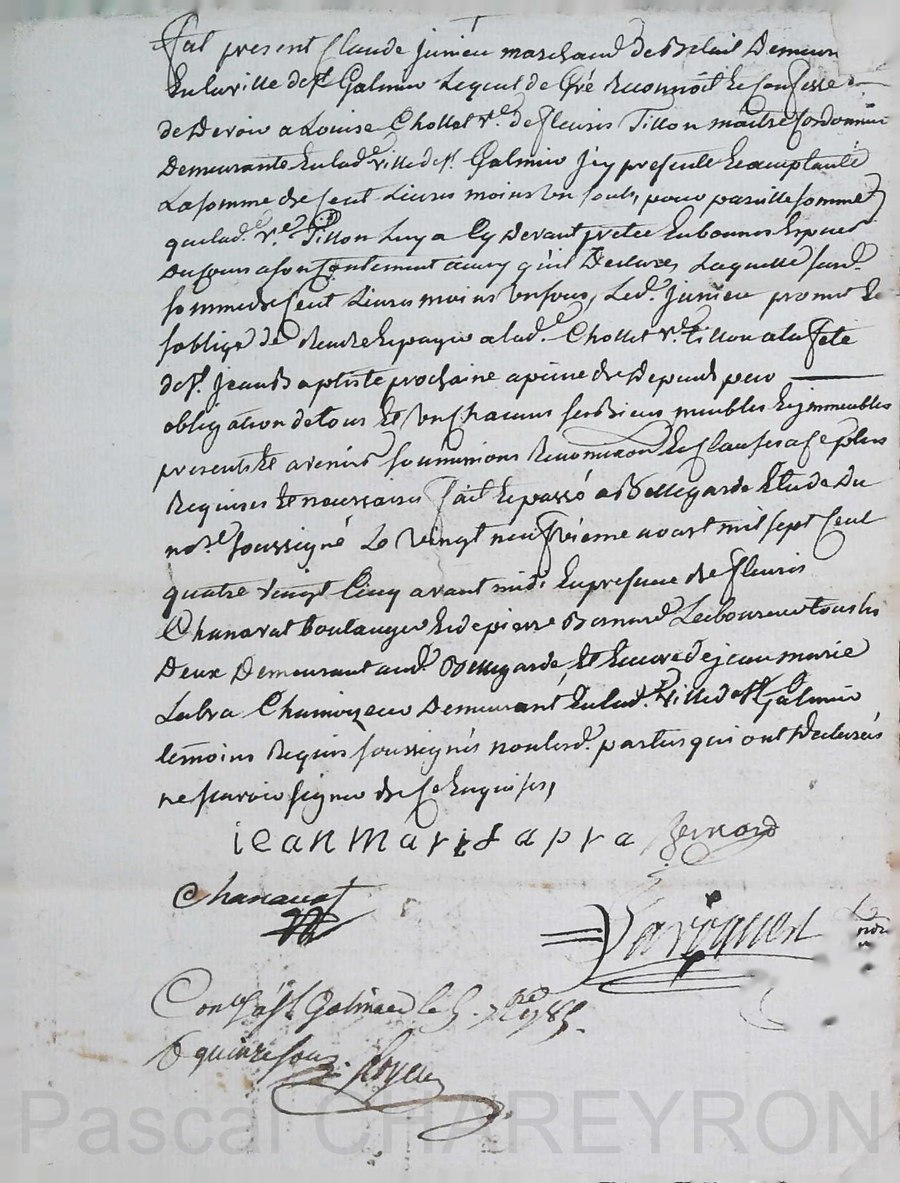 fut present Claude junieu marchand de Betail Demeurt
En la ville de st Galmier Lequel de Gré Reconnoit Et Confesse
de Devoir a Louise Chollet ve. de fleuris Tillon maitre Cordonnier
Demeurante En lad.e ville de st. Galmier Jcy presente Et acceptante
La somme de Cent Livres moins un sout, pour pareille somme
que lad.e ve. Tillon Luy a Cy Devant pretée En bonnes Especes
Du Cours a son Contentement ainsy qu'il Declare, Laquelle susd.e
somme de Cent Livres moins un sous, Led. junieu promet Et
s'oblige de Rendre Et payer a lad.e Chollet ve. Tillon a la fete
de st. Jean Baptiste prochaine a peine de Depends pour
obligation de tous Et un Chacuns ses Biens meubles Et jmmeubles
presents Et avenirs soumissions Renonciaon Et Clauses a Ce plus
Requises Et necessaires fait Et passé a Bellegarde Etude du
no.re soussigné Le vingt neufvieme aoust mil sept Cent
quatre vingt Cinq avant midi En presence de fleuris
Chanavat Boulanger Et de pierre Bernard Laboureur tous les
Deux Demeurant aud. Bellegarde, Et Encore de jean marie
Labra Chamoizeur Demeurant En lad. ville de st Galmier
temoins Requis soussignés non lesd. parties qui ont Declarées
ne scavoir signer de Ce Enquises,
iean Mari Lapra Bernard
Chanavat
Laroquest
Conlé a st Galmier le 5. 7bre 1785.
R quinze sous. Royer
Pascal CHAREYRON